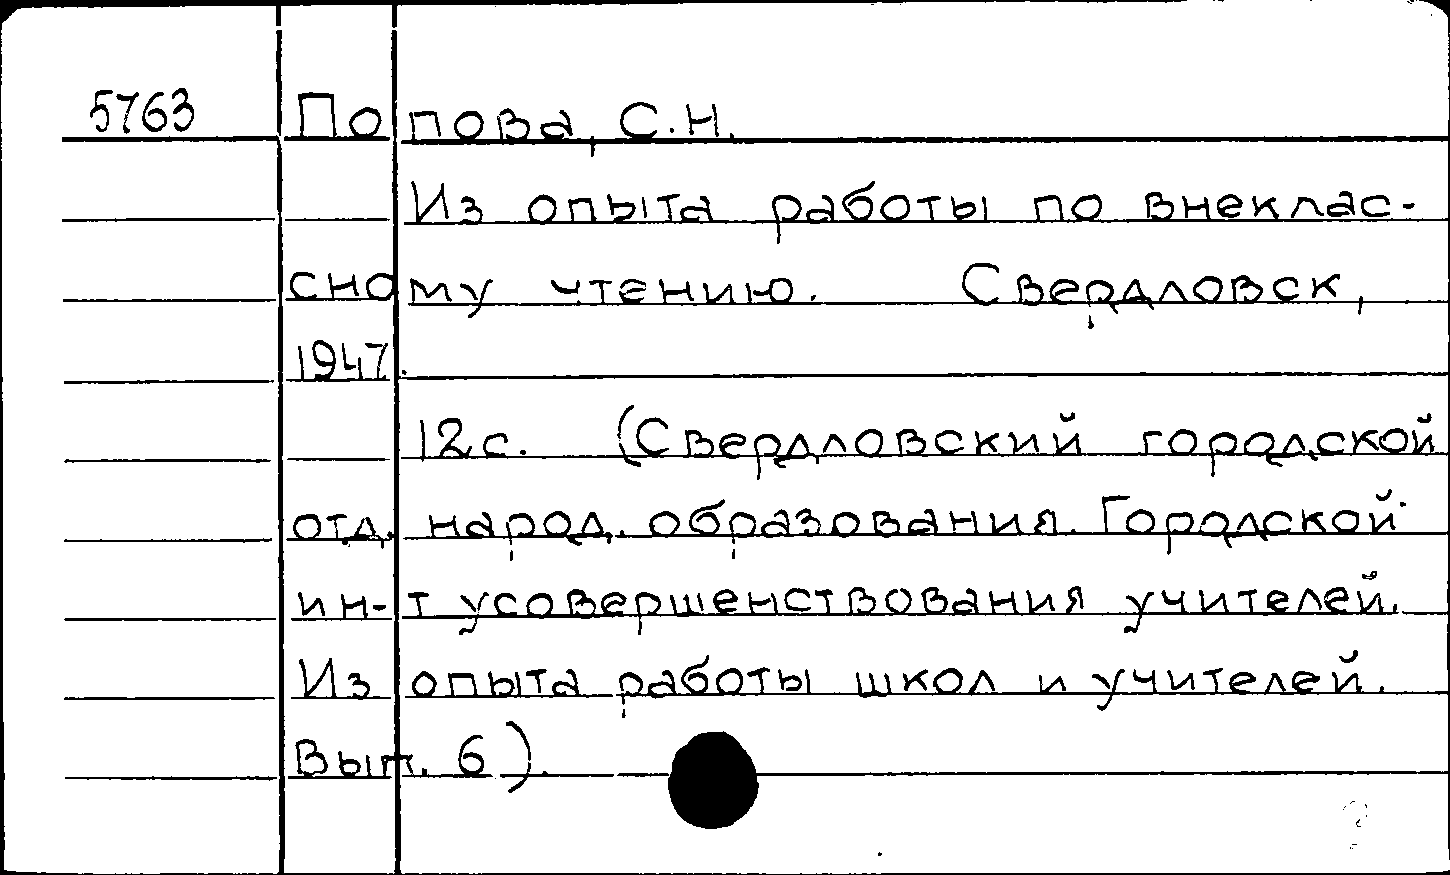 5763 Попова, С.Н.
Из опыта работы по внеклас-
сному чтению. Свердловск,
1947.
12с. (Свердловский городской
отд. народ. образования. Городской
ин-т усовершенствования учителей.
Из опыта работы школ и учителей.
Вып. 6).